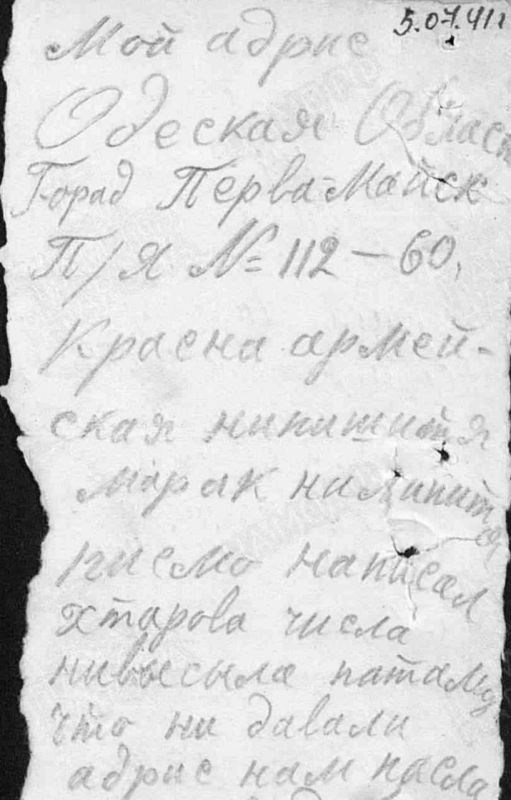 5.07.41г
Мой адрис
Одеская Област
Горад Перва-Майск
П/Я №112-60,
Красна армей-
ская нипишитя
марак нилипитя
писмо написал
хтарова числа
нивысыла патаму
что ни давали
адрис нам посла